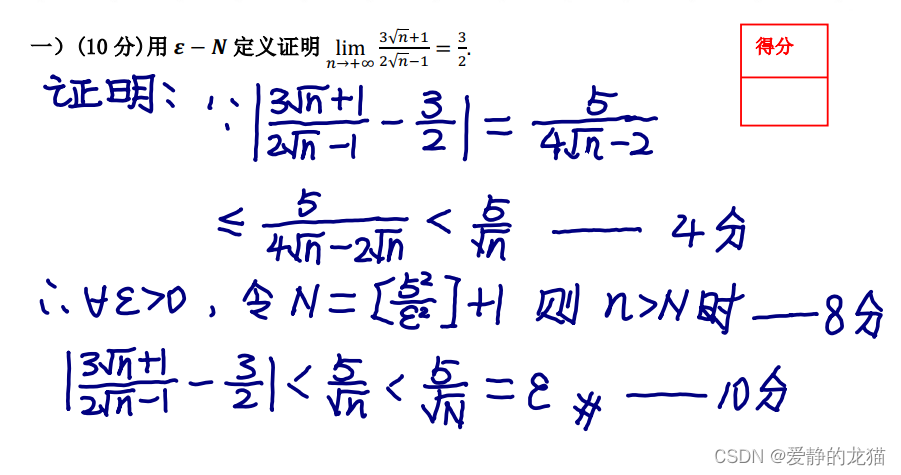 一）(10 分)用 ε − N 定义证明 lim n→+∞ (3√n+1)/(2√n−1) = 3/2.
得分
证明: ∵ |(3√n+1)/(2√n−1) − 3/2| = 5/(4√n−2)
≤ 5/(4√n−2√n) < 5/√n —— 4分
∴ ∀ε>0, 令 N = [5²/ε²]+1 则 n>N 时 —— 8分
|(3√n+1)/(2√n−1) − 3/2| < 5/√n < 5/√N = ε # —— 10分
CSDN @爱静的龙猫